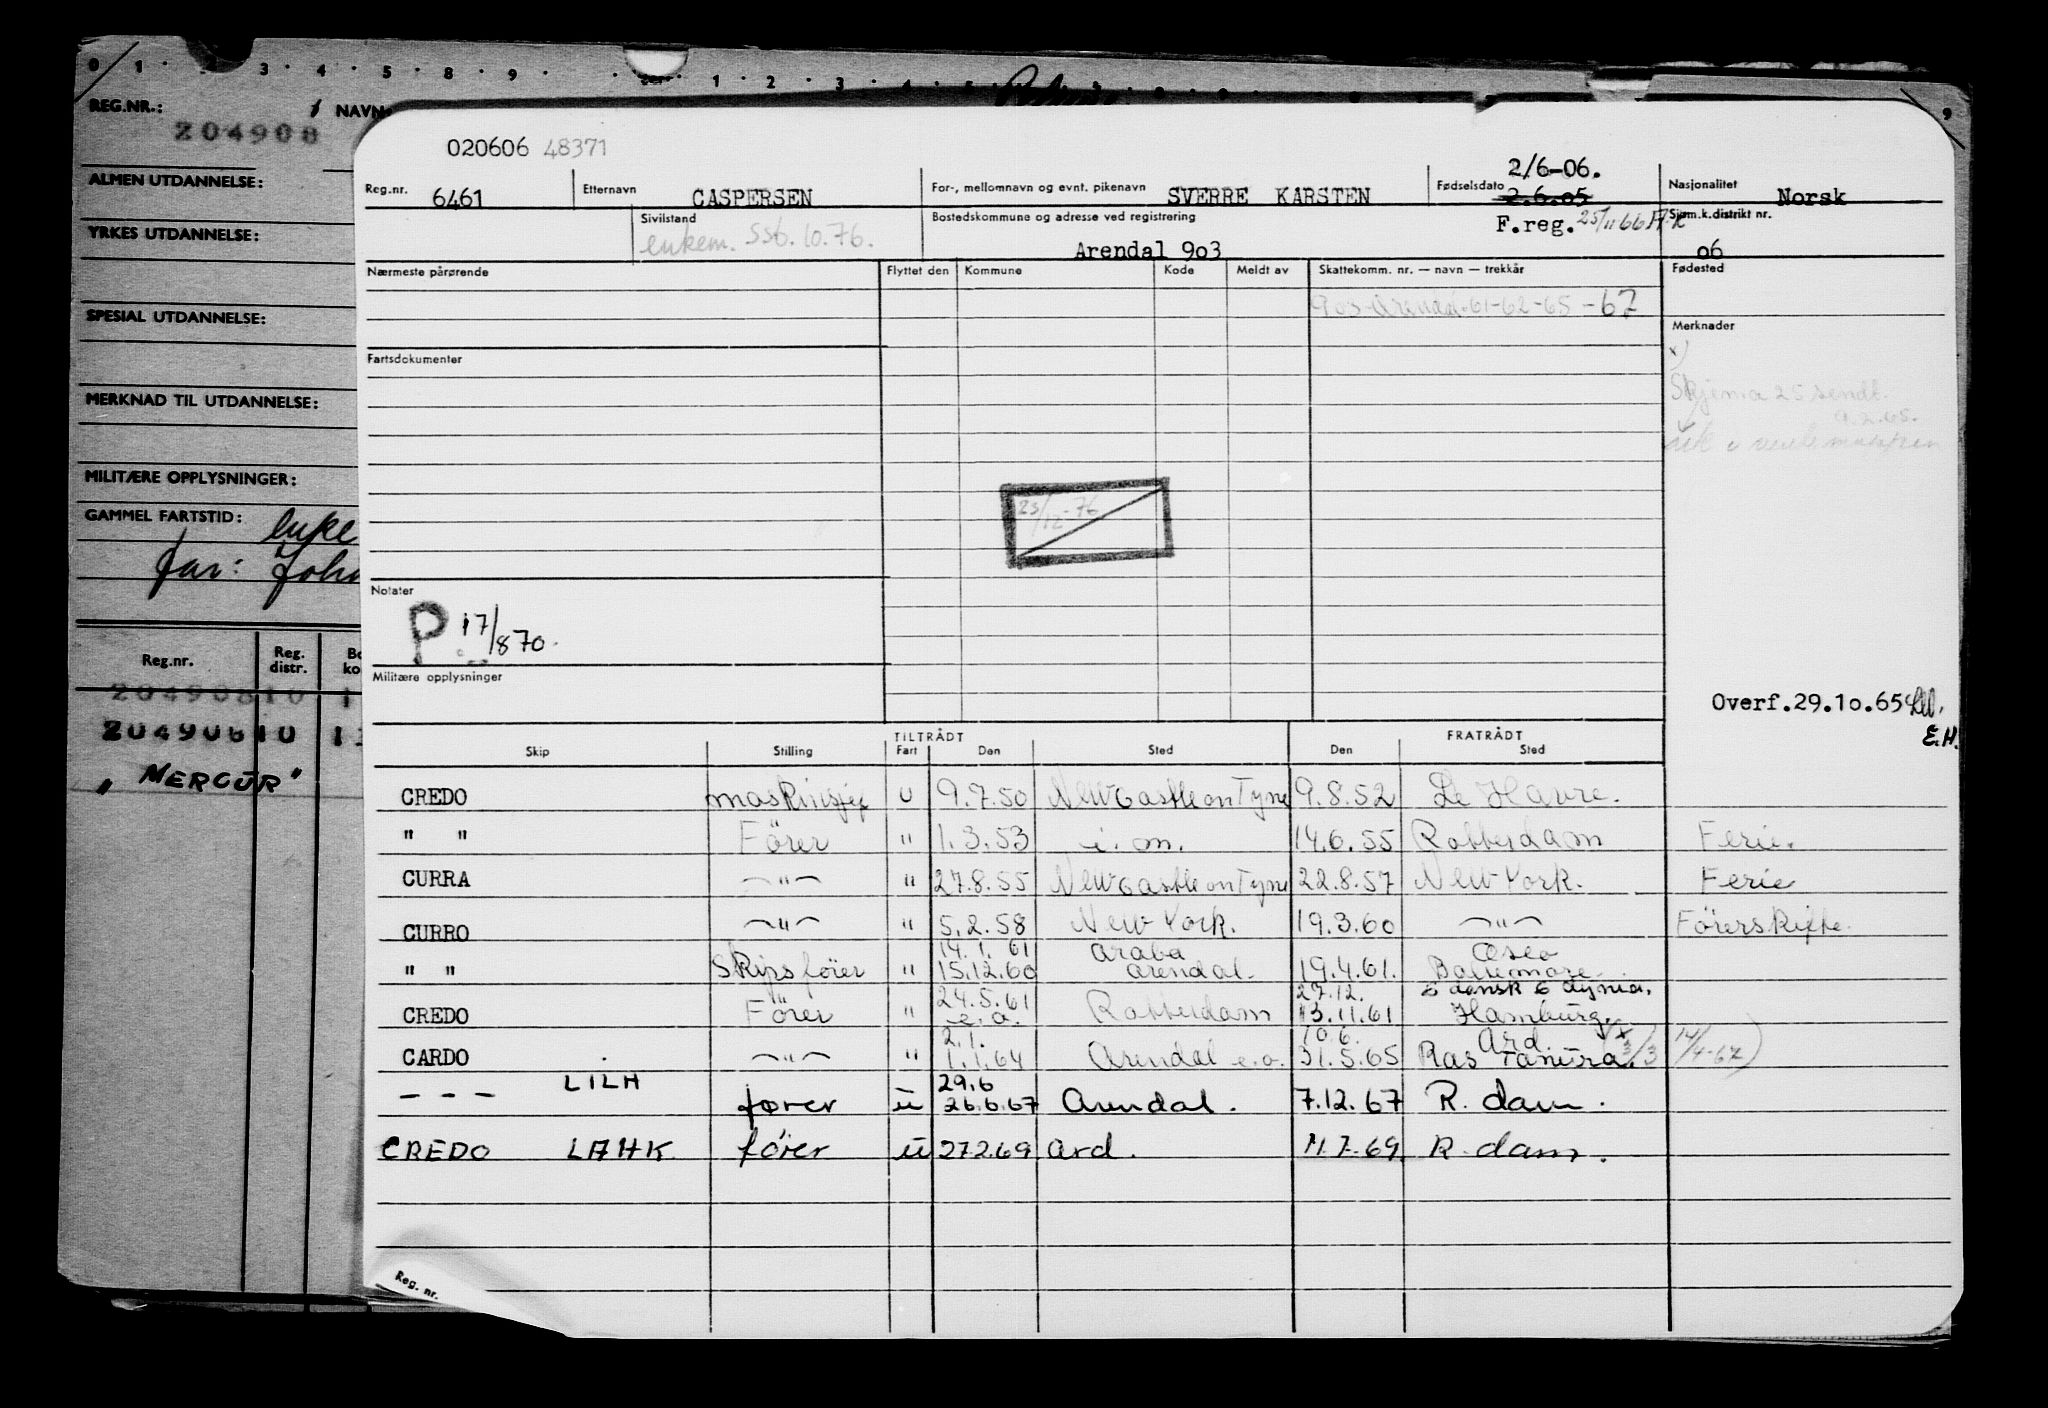 0 1 · 3 · 4 · 5 · 8 · 9 · 1 · 2 · 3 · 4 · 5
REG.NR.: NAVN
204908
ALMEN UTDANNELSE:
YRKES UTDANNELSE:
SPESIAL UTDANNELSE:
MERKNAD TIL UTDANNELSE:
MILITÆRE OPPLYSNINGER:
GAMMEL FARTSTID: enke
far: Joh
Reg.nr. Reg. distr. Bo ko
20490810 1
20490810 1
„ MERCUR"
020606 48371
Reg.nr. 6461 Etternavn CASPERSEN For-, mellomnavn og evnt. pikenavn SVERRE KARSTEN Fødselsdato 2/6-06. 2.6.05 Nasjonalitet Norsk
Sivilstand enkem. SS6. 10.76. Bostedskommune og adresse ved registrering Arendal 9o3 F.reg. 25/11 66 Sjøm.k.distrikt nr. o6
Nærmeste pårørende Flyttet den Kommune Kode Meldt av Skattekomm. nr. — navn — trekkår Fødested
903-Arendal-61-62-65-67
Merknader
x)
Fartsdokumenter
Skjema 25 sendt.
9.2.65.
23/12-76
Notater
P 17/8 70.
Militære opplysninger
Overf.29.1o.65
E.H.
TILTRÅDT FRATRÅDT
Skip Stilling Fart Den Sted Den Sted
CREDO maskinsjef u 9.7.50 Newcastle on Tyne 9.8.52 Le Havre.
" " Förer " 1.3.53 i. om. 14.6.55 Rotterdam Ferie.
CURRA —"— " 27.8.55 Newcastle on Tyne 22.8.57 New York. Ferie
CURRO —"— " 5.2.58 New York. 19.3.60 —"— Förerskifte.
14.1.61 Araba
" " Skipsförer " 15.12.60 Arendal. 19.4.61. Baltimore.
24.5.61 27.12.
CREDO Förer " e.a. Rotterdam 13.11.61 Hamburg.
2.1. 10.6. Ard.
CARDO —"— " 1.1.64 Arendal e.o. 31.5.65 Ras Tanura. 3/3 14/4-67)
29.6
- - - LILH fører u 26.6.67 Arendal. 7.12.67 R. dam.
CREDO LAHK förer u 27.2.69 Ard. 11.7.69. R. dam.
Reg. nr.